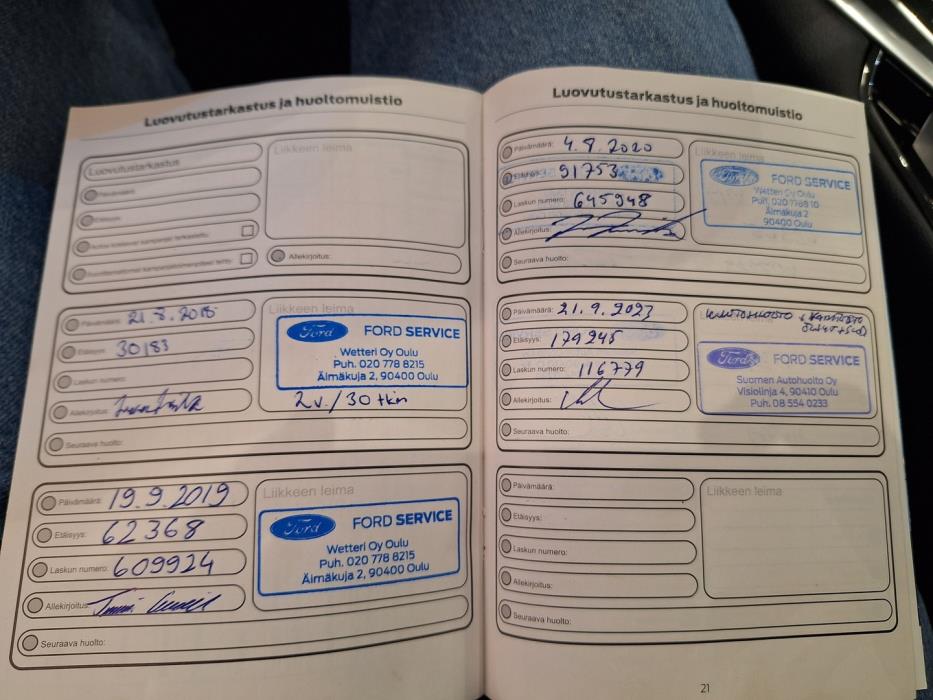 Luovutustarkastus ja huoltomuistio
Luovutustarkastus
Päivämäärä:
Etäisyys:
Liikkeen leima
Allekirjoitus:
Päivämäärä: 21.8.2018
Etäisyys: 30183
Laskun numero:
Allekirjoitus:
Seuraava huolto:
Liikkeen leima
Ford FORD SERVICE
Wetteri Oy Oulu
Puh. 020 778 8215
Älmäkuja 2, 90400 Oulu
2v./30 tkm
Päivämäärä: 19.9.2019
Etäisyys: 62368
Laskun numero: 609924
Allekirjoitus:
Seuraava huolto:
Liikkeen leima
Ford FORD SERVICE
Wetteri Oy Oulu
Puh. 020 778 8215
Älmäkuja 2, 90400 Oulu
Luovutustarkastus ja huoltomuistio
Päivämäärä: 4.8.2020
Etäisyys: 91753
Laskun numero: 645948
Allekirjoitus:
Seuraava huolto:
Liikkeen leima
Ford FORD SERVICE
Wetteri Oy Oulu
Älmäkuja 2
90400 Oulu
Päivämäärä: 21.9.2023
Etäisyys: 179245
Laskun numero: 116779
Allekirjoitus:
Seuraava huolto:
Ford FORD SERVICE
Suomen Autohuolto Oy
Visiolinja 4, 90410 Oulu
Puh. 08 554 0233
Päivämäärä:
Etäisyys:
Laskun numero:
Allekirjoitus:
Seuraava huolto:
Liikkeen leima
21